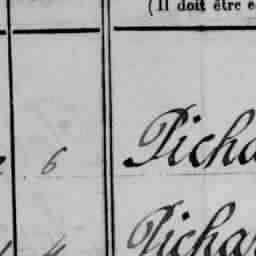 (Il doit être e
6 Picha
4 Pichar